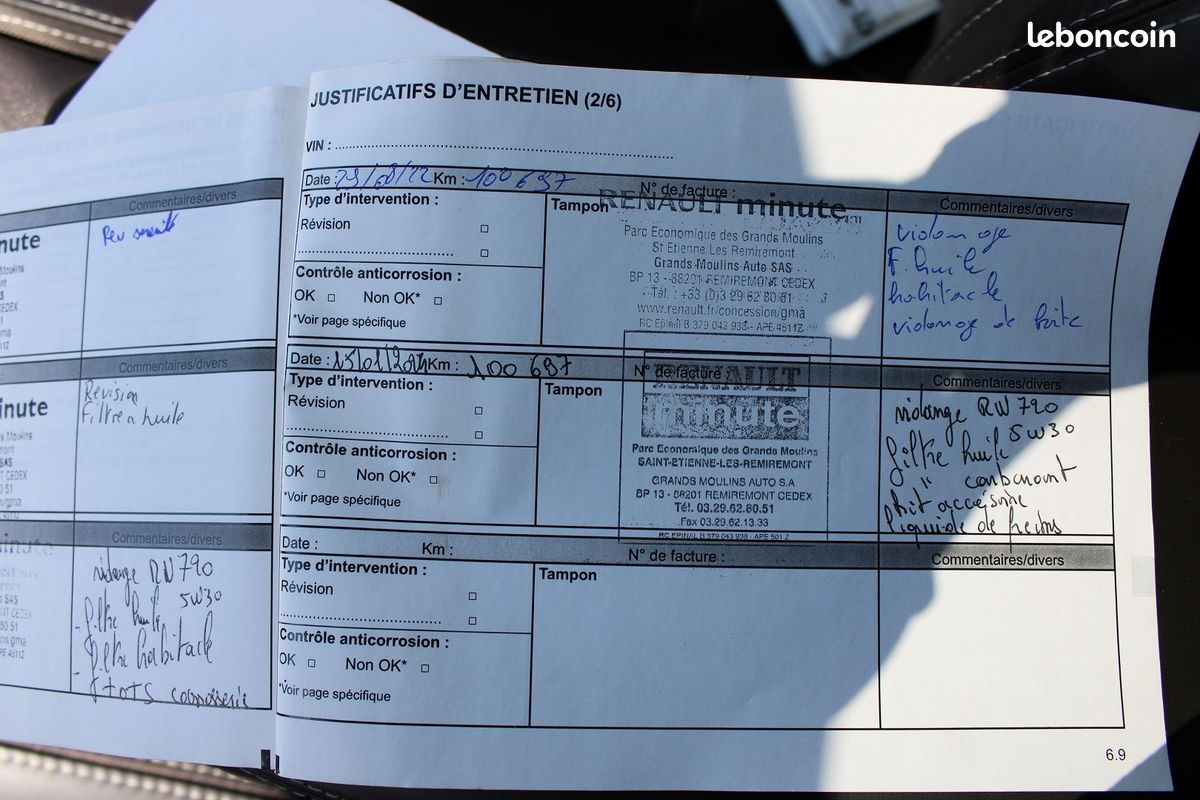 leboncoin
nute
Moulins
CEDEX
Commentaires/divers
Rev serenité
inute
Moulins
SAS
CEDEX
Commentaires/divers
Révision
Filtre a huile
Commentaires/divers
vidange RN 720
5W30
- filtre huile
- filtre habitacle
APE 4511Z
JUSTIFICATIFS D'ENTRETIEN (2/6)
VIN :
Date : Km : 100 697 N° de facture :
Type d'intervention :
Révision
Contrôle anticorrosion :
OK Non OK*
*Voir page spécifique
Tampon
RENAULT minute
Parc Economique des Grands Moulins
St Etienne Les Remiremont
Grands Moulins Auto SAS
BP 13 - 88201 REMIREMONT CEDEX
Tél. : +33 (0)3 29 62 80 51
www.renault.fr/concession/gma
RC Epinal B 379 043 938 - APE 4511Z
Commentaires/divers
vidange
F. huile
habitacle
vidange de boite
Date : Km : 100 697 N° de facture :
Type d'intervention :
Révision
Contrôle anticorrosion :
OK Non OK*
*Voir page spécifique
Tampon
RENAULT
minute
Parc Economique des Grands Moulins
SAINT-ETIENNE-LES-REMIREMONT
GRANDS MOULINS AUTO S.A.
BP 13 - 88201 REMIREMONT CEDEX
Tél. 03.29.62.80.51
Fax 03.29.62.13.33
RC EPINAL B 379 043 938 - APE 501 Z
Commentaires/divers
vidange RN 720
5W30
filtre huile
" carburant
kit accessoire
liquide de freins
Date : Km : N° de facture :
Type d'intervention :
Révision
Contrôle anticorrosion :
OK Non OK*
*Voir page spécifique
Tampon
Commentaires/divers
6.9